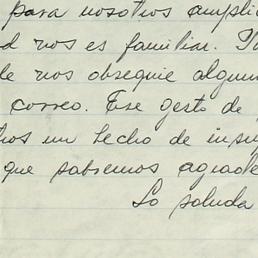 para nosotros ampli
d nos es familiar.
le nos obsequie algun
correo. Ese gesto de
tros un hecho de insu
que sabremos agrade
Lo saluda